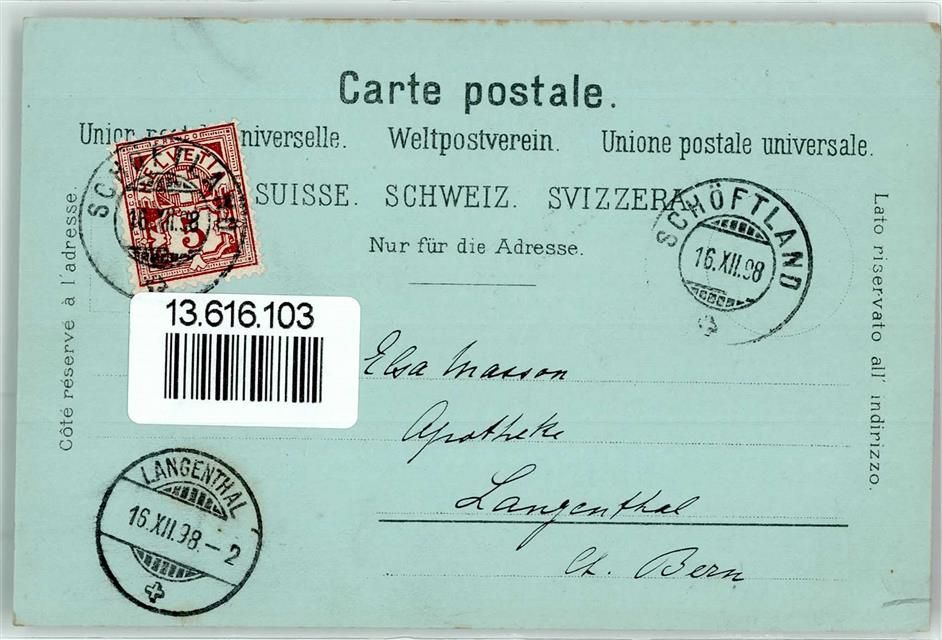 Carte postale.
Union postale universelle. Weltpostverein. Unione postale universale.
SUISSE. SCHWEIZ. SVIZZERA
Nur für die Adresse.
Côté réservé à l'adresse.
Lato riservato all' indirizzo.
HELVETIA
5
SCHÖFTLAND
16.XII.98
SCHÖFTLAND
16.XII.98
13.616.103
Elsa Masson
Apotheke
Langenthal
Ct. Bern
LANGENTHAL
16.XII.98.-2